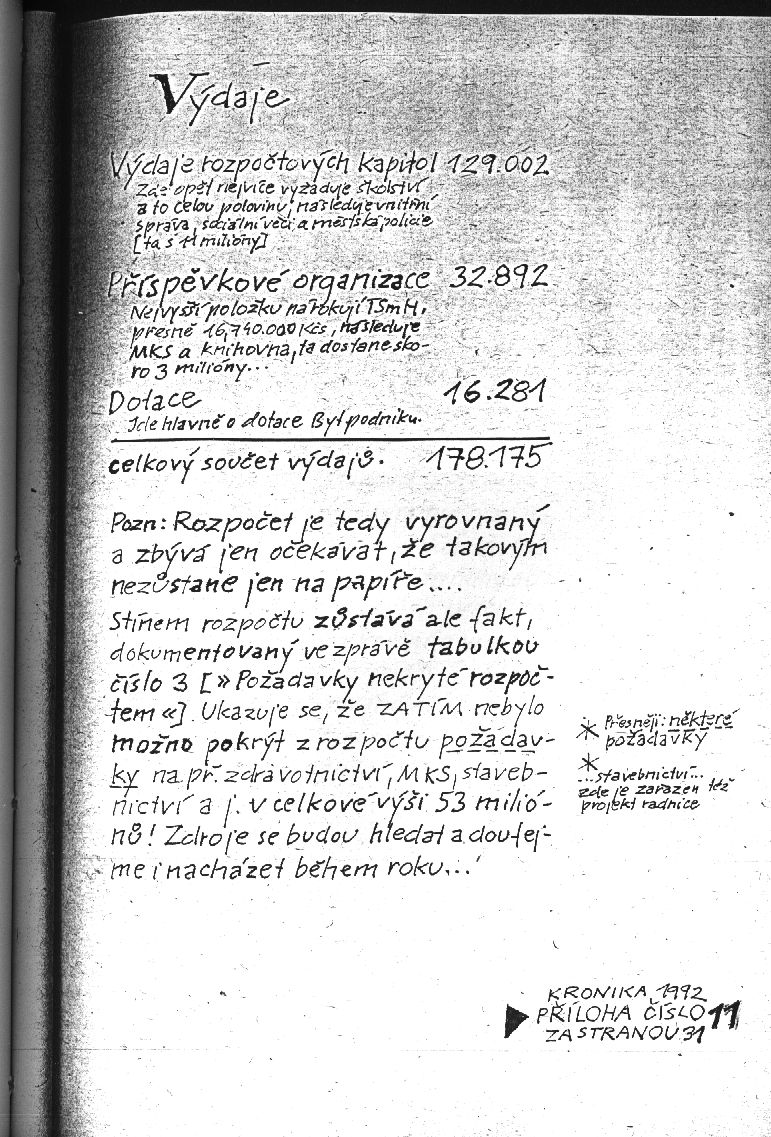 Výdaje
Výdaje rozpočtových kapitol 129.002
Zde opět nejvíce vyžaduje školství
a to celou polovinu, následuje vnitřní
správa, sociální věci a městská policie
[ta s 11 milióny]
Příspěvkové organizace 32.892
Nejvyšší položku nárokují TSmH,
přesně 16,740.000 Kčs, následuje
MKS a knihovna, ta dostane sko-
ro 3 milióny...
Dotace 16.281
Jde hlavně o dotace Bytpodniku.
celkový součet výdajů. 178.175
Pozn: Rozpočet je tedy vyrovnaný
a zbývá jen očekávat, že takovým
nezůstane jen na papíře....
Stínem rozpočtu zůstává ale fakt,
dokumentovaný ve zprávě tabulkou
číslo 3 [»Požadavky nekryté rozpoč-
tem«]. Ukazuje se, že ZATÍM nebylo
možno pokrýt z rozpočtu požadav-
ky na př. zdravotnictví, MKS, staveb-
nictví a j. v celkové výši 53 milió-
nů! Zdroje se budou hledat a doufej-
me i nacházet během roku...
* Přesněji: některé
požadavky
*
...stavebnictví...
zde je zařazen též
projekt radnice
KRONIKA 1992
PŘÍLOHA ČÍSLO 11
ZA STRANOU 31